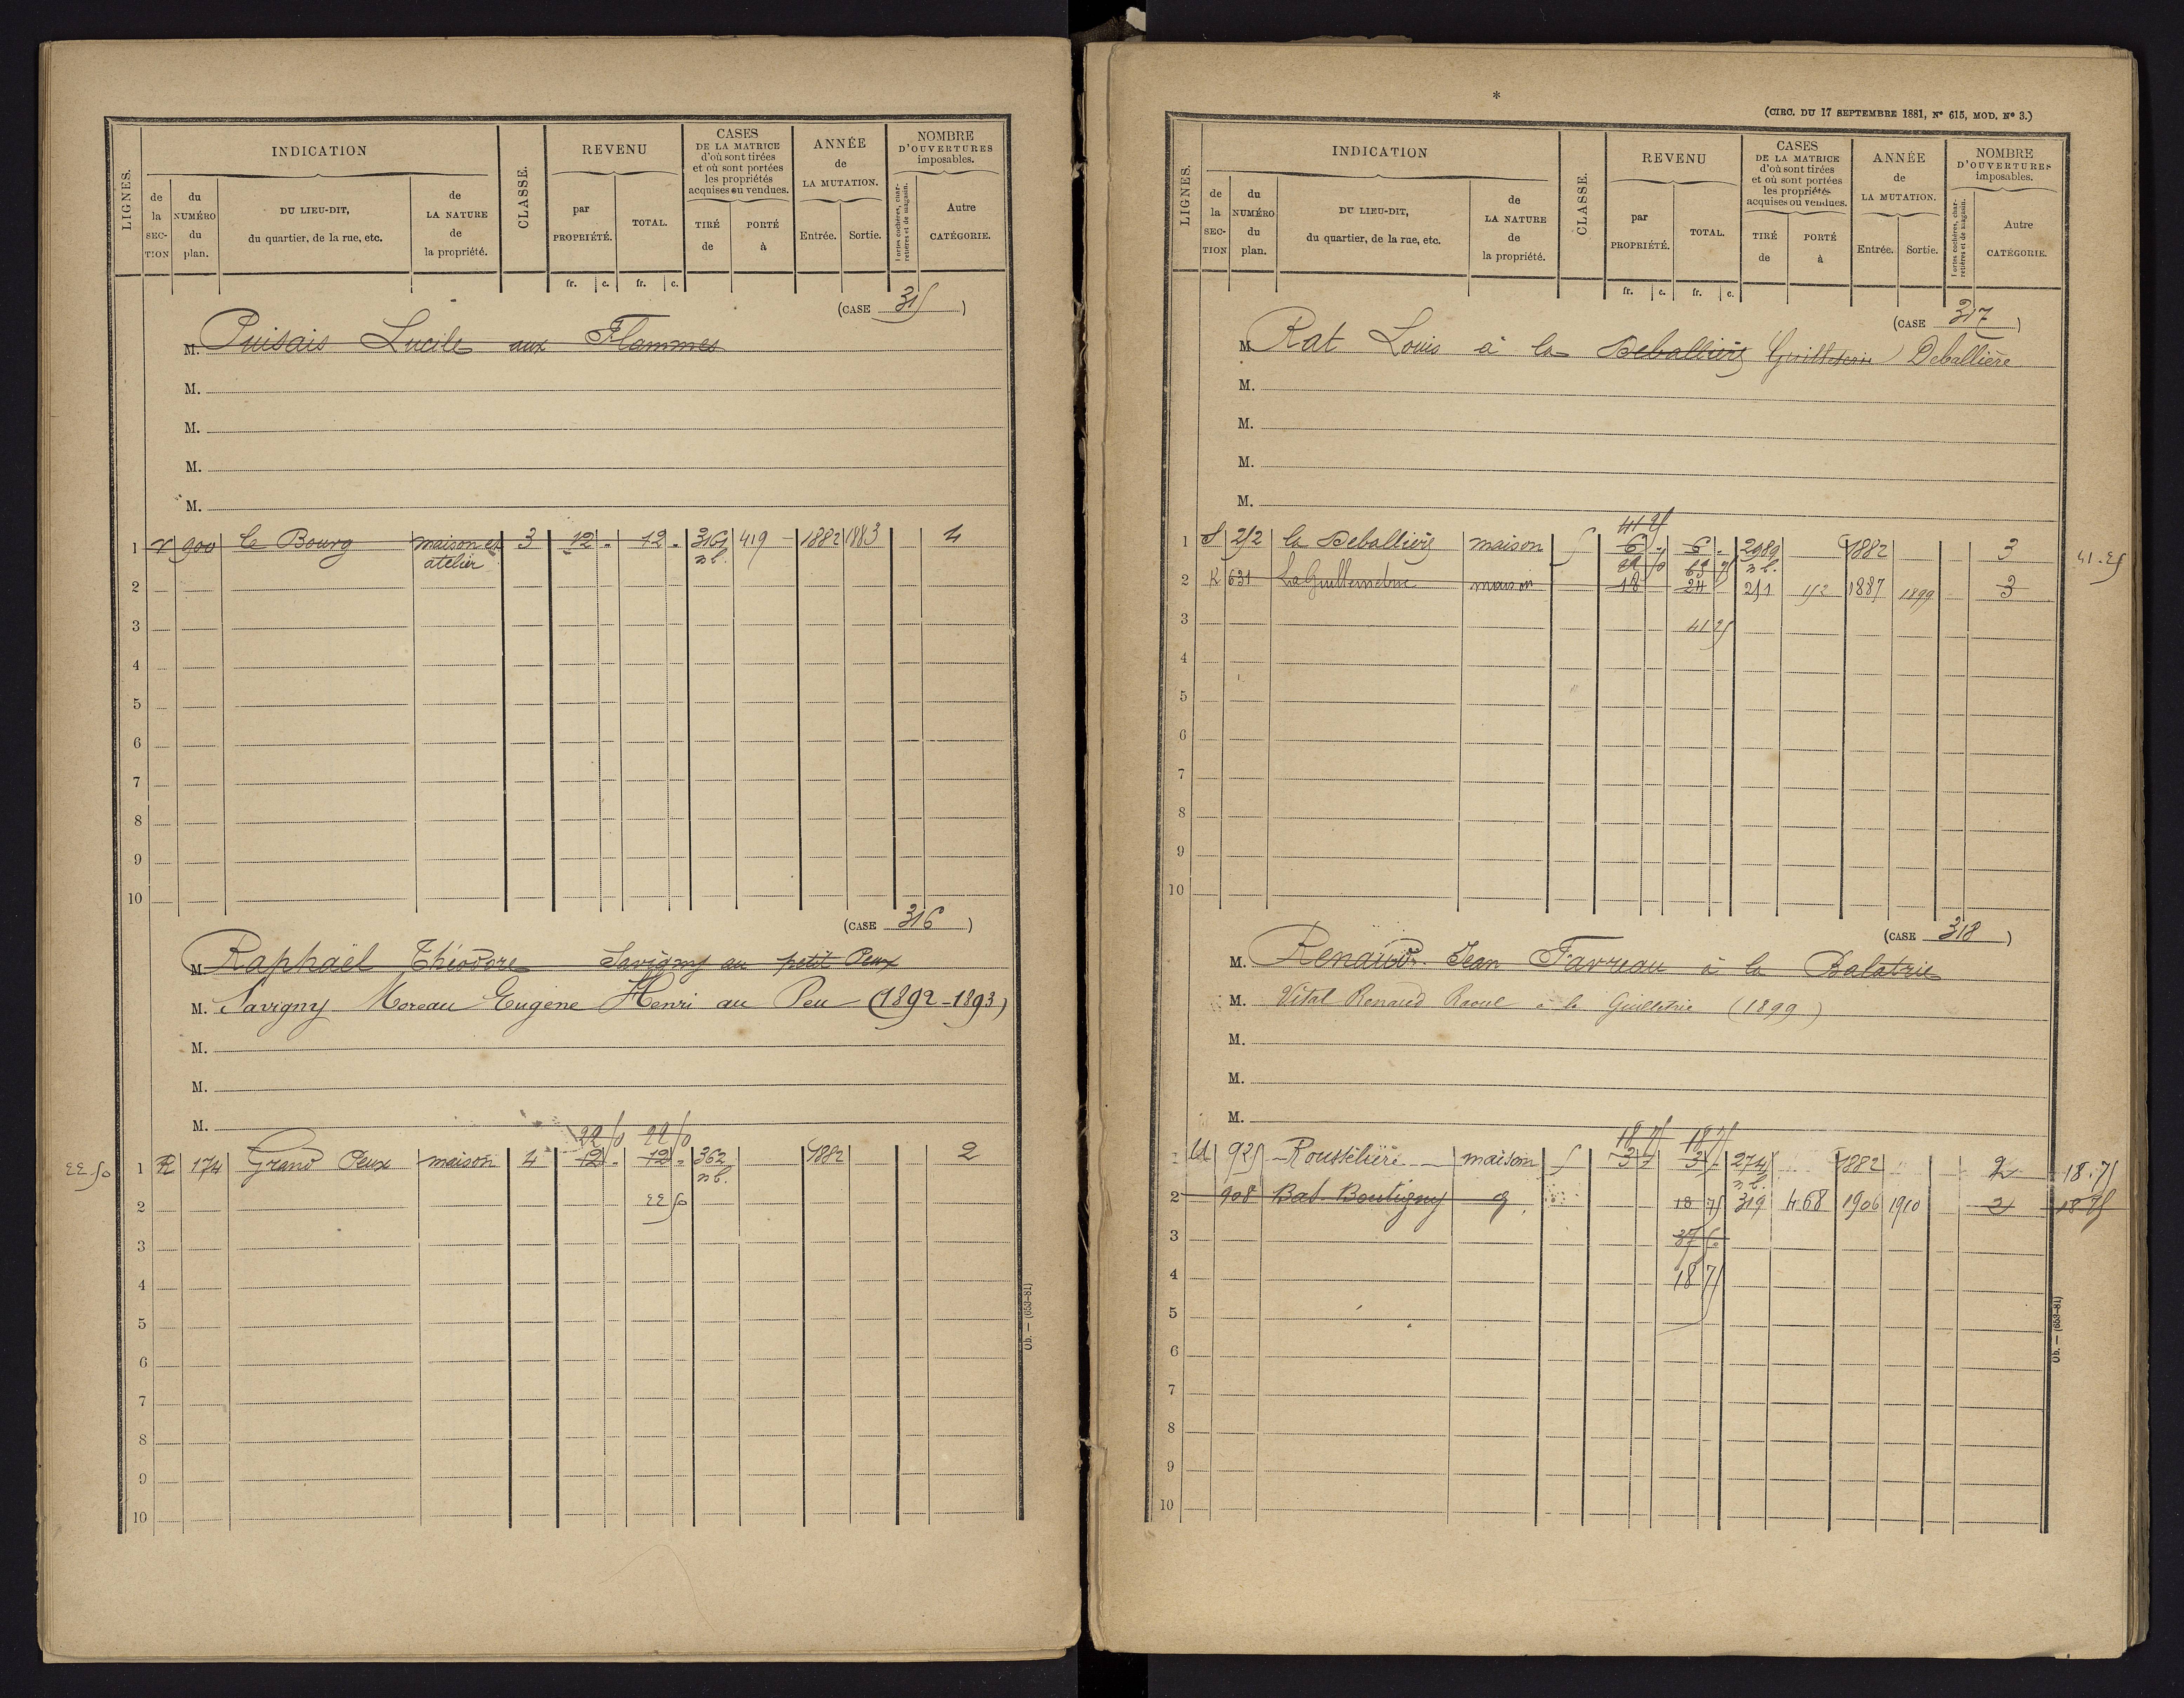 LIGNES.
INDICATION
de la SECTION
du NUMÉRO du plan.
DU LIEU-DIT, du quartier, de la rue, etc.
de LA NATURE de la propriété.
CLASSE.
REVENU
par PROPRIÉTÉ.
TOTAL.
fr. c. fr. c.
CASES DE LA MATRICE d'où sont tirées et où sont portées les propriétés acquises ou vendues.
TIRÉ de
PORTÉ à
ANNÉE de LA MUTATION.
Entrée. Sortie.
NOMBRE D'OUVERTURES imposables.
Portes cochères, charretières et de magasin.
Autre CATÉGORIE.
(CASE 315)
M. Puisais Lucile aux Flammes
M.
M.
M.
M.
1 V 900 le Bourg maison et atelier 3 12 - 12 - 3161 n b. 419 1882 1883 4
2
3
4
5
6
7
8
9
10
(CASE 316)
M. Raphaël Théodore Savigny au petit Peux
M. Savigny Moreau Eugène Henri au Peu (1892-1893)
M.
M.
M.
22 50 22 50
22 50 1 R 174 Grand Peux maison 4 12 - 12 - 362 n b. 1882 2
2 22 50
3
4
5
6
7
8
9
10
Ob. — (653-81)
(CIRC. DU 17 SEPTEMBRE 1881, N° 615, MOD. N° 3.)
LIGNES.
INDICATION
de la SECTION
du NUMÉRO du plan.
DU LIEU-DIT, du quartier, de la rue, etc.
de LA NATURE de la propriété.
CLASSE.
REVENU
par PROPRIÉTÉ.
TOTAL.
fr. c. fr. c.
CASES DE LA MATRICE d'où sont tirées et où sont portées les propriétés acquises ou vendues.
TIRÉ de
PORTÉ à
ANNÉE de LA MUTATION.
Entrée. Sortie.
NOMBRE D'OUVERTURES imposables.
Portes cochères, charretières et de magasin.
Autre CATÉGORIE.
(CASE 317)
M. Rat Louis à la Deballière Deballière
M.
M.
M.
M.
41 25
1 S 252 la Deballière maison 5 6 - 6 - 2989 n b. 1882 3 41.25
2 K 631 maison 18 24 251 152 1887 1899 3
3 41 25
4
5
6
7
8
9
10
(CASE 318)
M. Renaud Jean Favreau à la Balatrie
M. Vital Renaud Raoul à la Guilletrie (1899)
M.
M.
M.
18 75 18 75
1 U 925 Rousselière maison 5 3 - 3 - 274 n b. 1882 2 18.75
2 908 Bat. Boutigny 18 75 319 468 1906 1910 2 18 75
3 37 50
4 18 75
5
6
7
8
9
10
Ob. — (653-81)